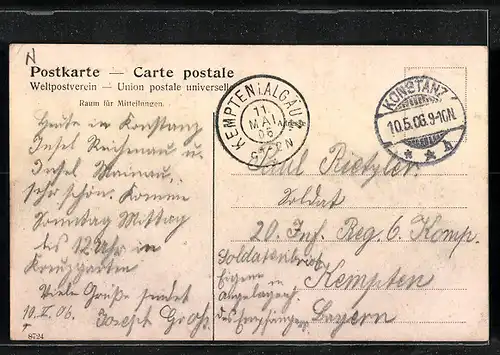 N
Postkarte — Carte postale
Weltpostverein – Union postale universelle
Raum für Mitteilungen.
Heute in Konstanz
Insel Reichenau u.
Insel Mainau,
sehr schön. Komme
Sonntag Mittag
bis 12 Uhr in
Kreuzgarten
Viele Grüße sendet
10.V.06. Joseph
8724
KEMPTEN (ALGÄU)
11
MAI
06
KONSTANZ
10.5.06.9-10N.
Paul
Soldat
20. Inf. Reg. 6. Komp.
Soldatenbrief
Eigene
Kempten
Angelegenh.
des Empfängers
Bayern